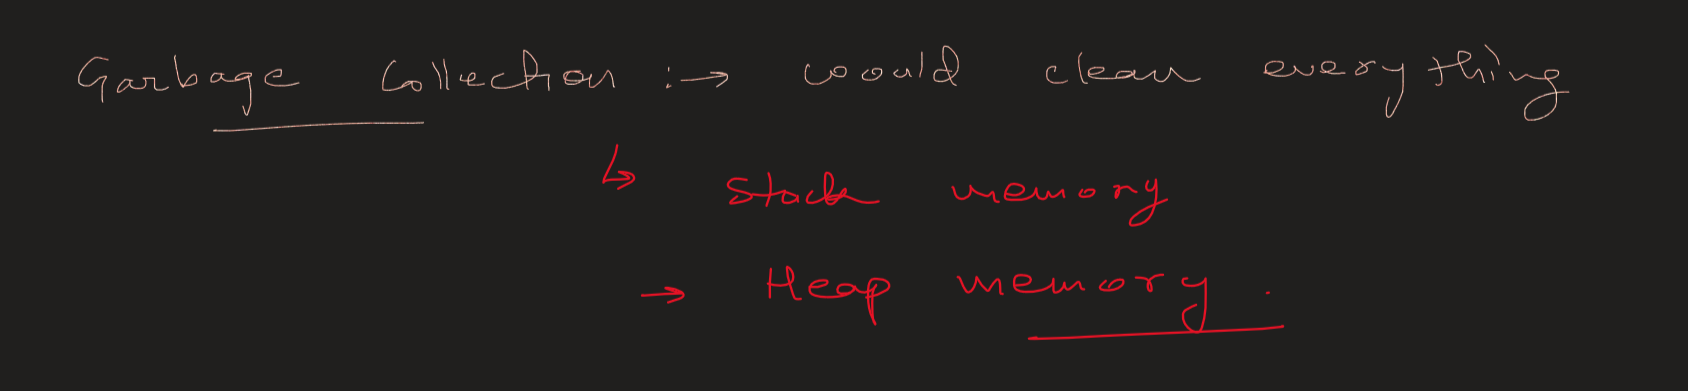 Garbage Collection :→ would clean everything
↳ Stack memory
→ Heap memory.